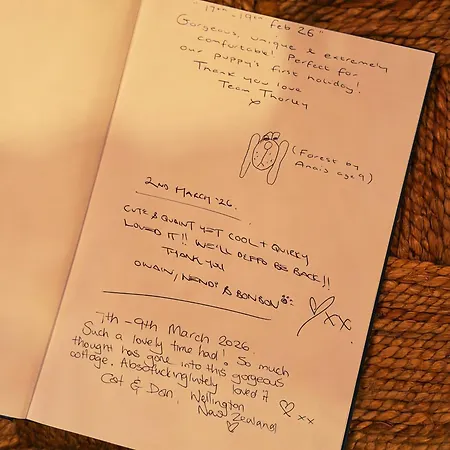 "17th - 19th Feb 26"
Gorgeous, unique & extremely
comfortable! Perfect for
our puppy's first holiday!
Thank you love
Team Thorley
x
(Forest by
Anais age 9)
2ND MARCH '26.
CUTE & QUAINT YET COOL + QUIRKY
LOVED IT!! WE'LL DEFFO BE BACK!!
THANK YOU
OWAIN, WENDY & BONBON
xx
7th - 9th March 2026.
Such a lovely time had! So much
thought has gone into this gorgeous
cottage. Absofuckinglutely loved it
Cat & Dan. Wellington xx
New Zealand